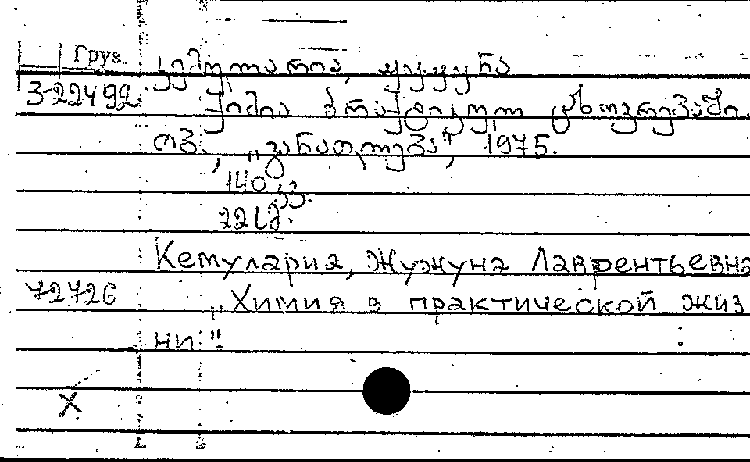 Груз. კემულარია, ჟუჟუნა
3-22492 ქიმია პრაქტიკულ ცხოვრებაში.
თბ., „განათლება", 1975.
140 გვ.
Кемулария, Жужуна Лаврентьевна
72726 „Химия в практической жиз
ни."
X